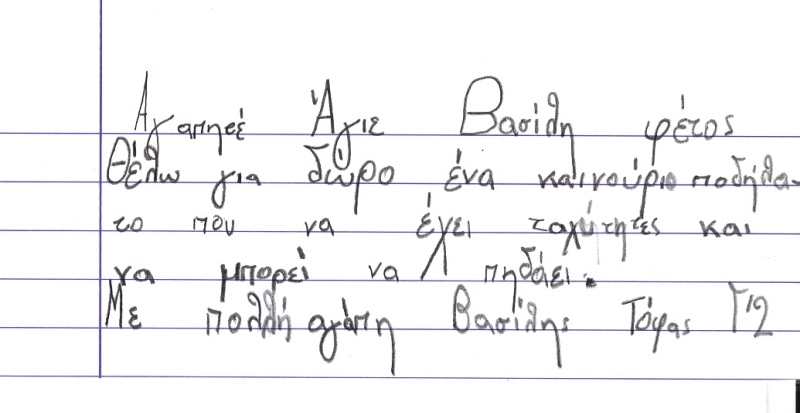 Αγαπητέ Άγιε Βασίλη φέτος
Θέλω για δώρο ένα καινούριο ποδήλα-
το που να έχει ταχύτητες και
να μπορεί να πηδάει.
Με πολλή αγάπη Βασίλης Τόφας Γ'2